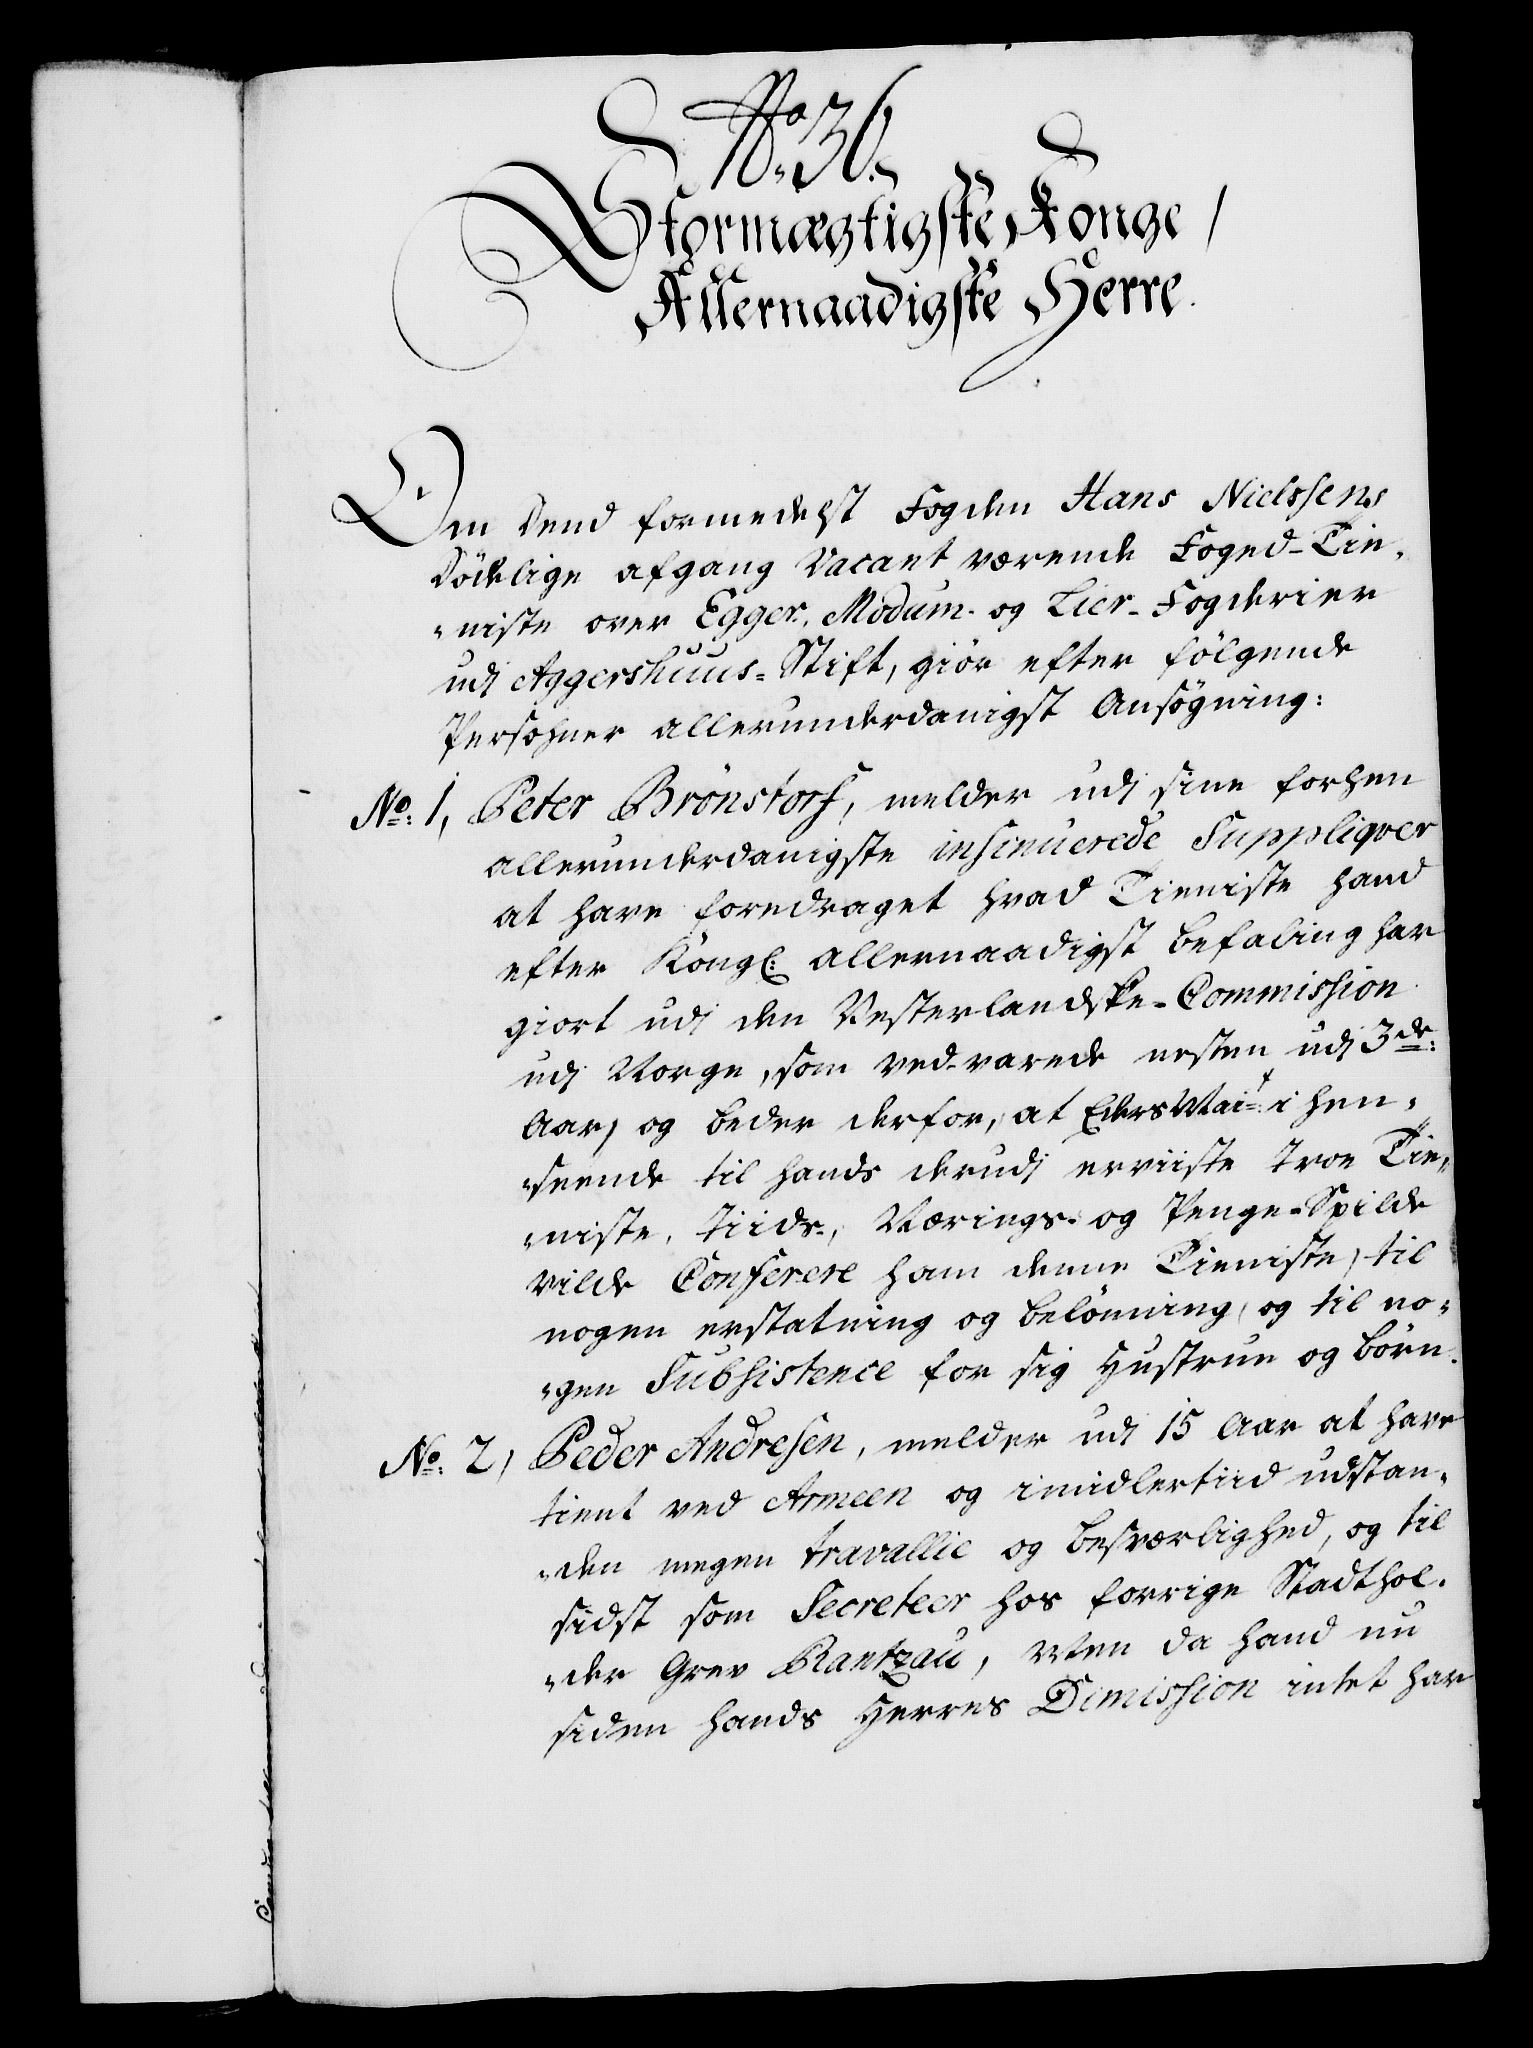 No. 36.
Stormægtigste Konge /
Allernaadigste Herre.
Om dend formedelst Fogden Hans Nielssens
dödelige afgang vacant værende Foged-Tie-
niste over Egger, Modum- og Lier-Fogderier
udj Aggershuus-Stift, giör efter fölgende
Persohner allerunderdanigst Ansögning:
No: 1, Peter Brönstorf, melder udj sine forhen
allerunderdanigste insinuerede Suppliqver
at have foredraget hvad Tieniste hand
efter Kongl: allernaadigst befaling har
giort udj den Vesterlandske-Commission
udj Norge, som ved-varede nesten udj 3de:
Aar, og beder derfor, at Eders Mait: i hen-
seende til hands derudj erviiste troe Tie-
niste, Tiids-, Nærings- og Penge-Spilde
vilde Conferere ham denne Tieniste, til
nogen erstatning og belönning, og til no-
gen Subsistence for sig Hustrue og börn.
No: 2, Peder Andresen, melder udj 15 Aar at have
tient ved Armeen og imidlertiid udstan-
den megen travallie og besværlighed, og til
sidst som Secreteer hos forrige Stadthol-
der Grev Rantzau, Men da hand nu
siden hands Herres Dimission intet har